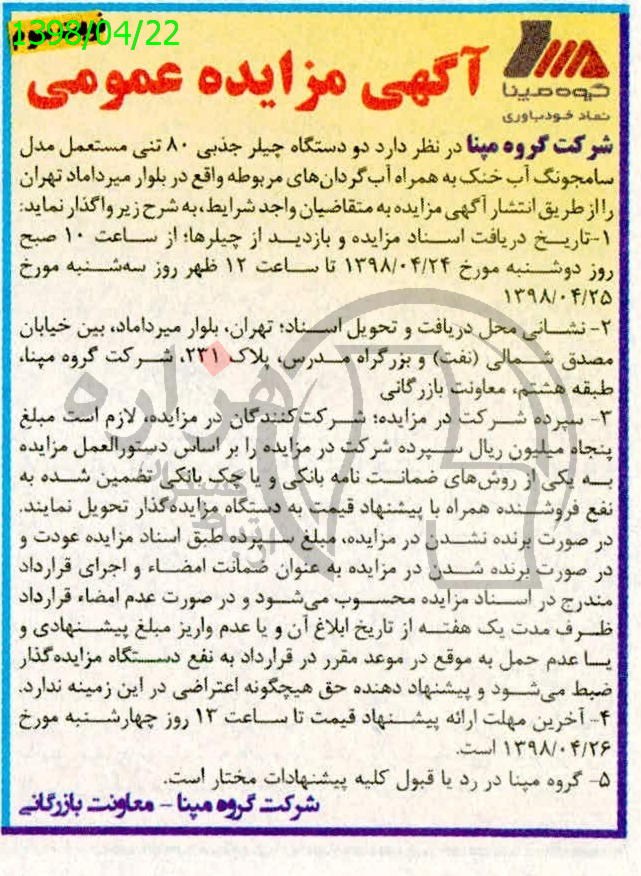 1398/04/22
گروه مپنا
نماد خودباوری
آگهی مزایده عمومی
شرکت گروه مپنا در نظر دارد دو دستگاه چیلر جذبی ۸۰ تنی مستعمل مدل
سامجونگ آب خنک به همراه آب‌گردان‌های مربوطه واقع در بلوار میرداماد تهران
را از طریق انتشار آگهی مزایده به متقاضیان واجد شرایط، به شرح زیر واگذار نماید:
۱-تاریخ دریافت اسناد مزایده و بازدید از چیلرها؛ از ساعت ۱۰ صبح
روز دوشنبه مورخ ۱۳۹۸/۰۴/۲۴ تا ساعت ۱۲ ظهر روز سه‌شنبه مورخ
۱۳۹۸/۰۴/۲۵
۲- نشانی محل دریافت و تحویل اسناد؛ تهران، بلوار میرداماد، بین خیابان
مصدق شمالی (نفت) و بزرگراه مدرس، پلاک ۲۳۱، شرکت گروه مپنا،
طبقه هشتم، معاونت بازرگانی
۳- سپرده شرکت در مزایده؛ شرکت‌کنندگان در مزایده، لازم است مبلغ
پنجاه میلیون ریال سپرده شرکت در مزایده را بر اساس دستورالعمل مزایده
به یکی از روش‌های ضمانت نامه بانکی و یا چک بانکی تضمین شده به
نفع فروشنده همراه با پیشنهاد قیمت به دستگاه مزایده‌گذار تحویل نمایند.
در صورت برنده نشدن در مزایده، مبلغ سپرده طبق اسناد مزایده عودت و
در صورت برنده شدن در مزایده به عنوان ضمانت امضاء و اجرای قرارداد
مندرج در اسناد مزایده محسوب می‌شود و در صورت عدم امضاء قرارداد
ظرف مدت یک هفته از تاریخ ابلاغ آن و یا عدم واریز مبلغ پیشنهادی و
یا عدم حمل به موقع در موعد مقرر در قرارداد به نفع دستگاه مزایده‌گذار
ضبط می‌شود و پیشنهاد دهنده حق هیچگونه اعتراضی در این زمینه ندارد.
۴- آخرین مهلت ارائه پیشنهاد قیمت تا ساعت ۱۳ روز چهارشنبه مورخ
۱۳۹۸/۰۴/۲۶ است.
۵- گروه مپنا در رد یا قبول کلیه پیشنهادات مختار است.
شرکت گروه مپنا - معاونت بازرگانی
هزاره